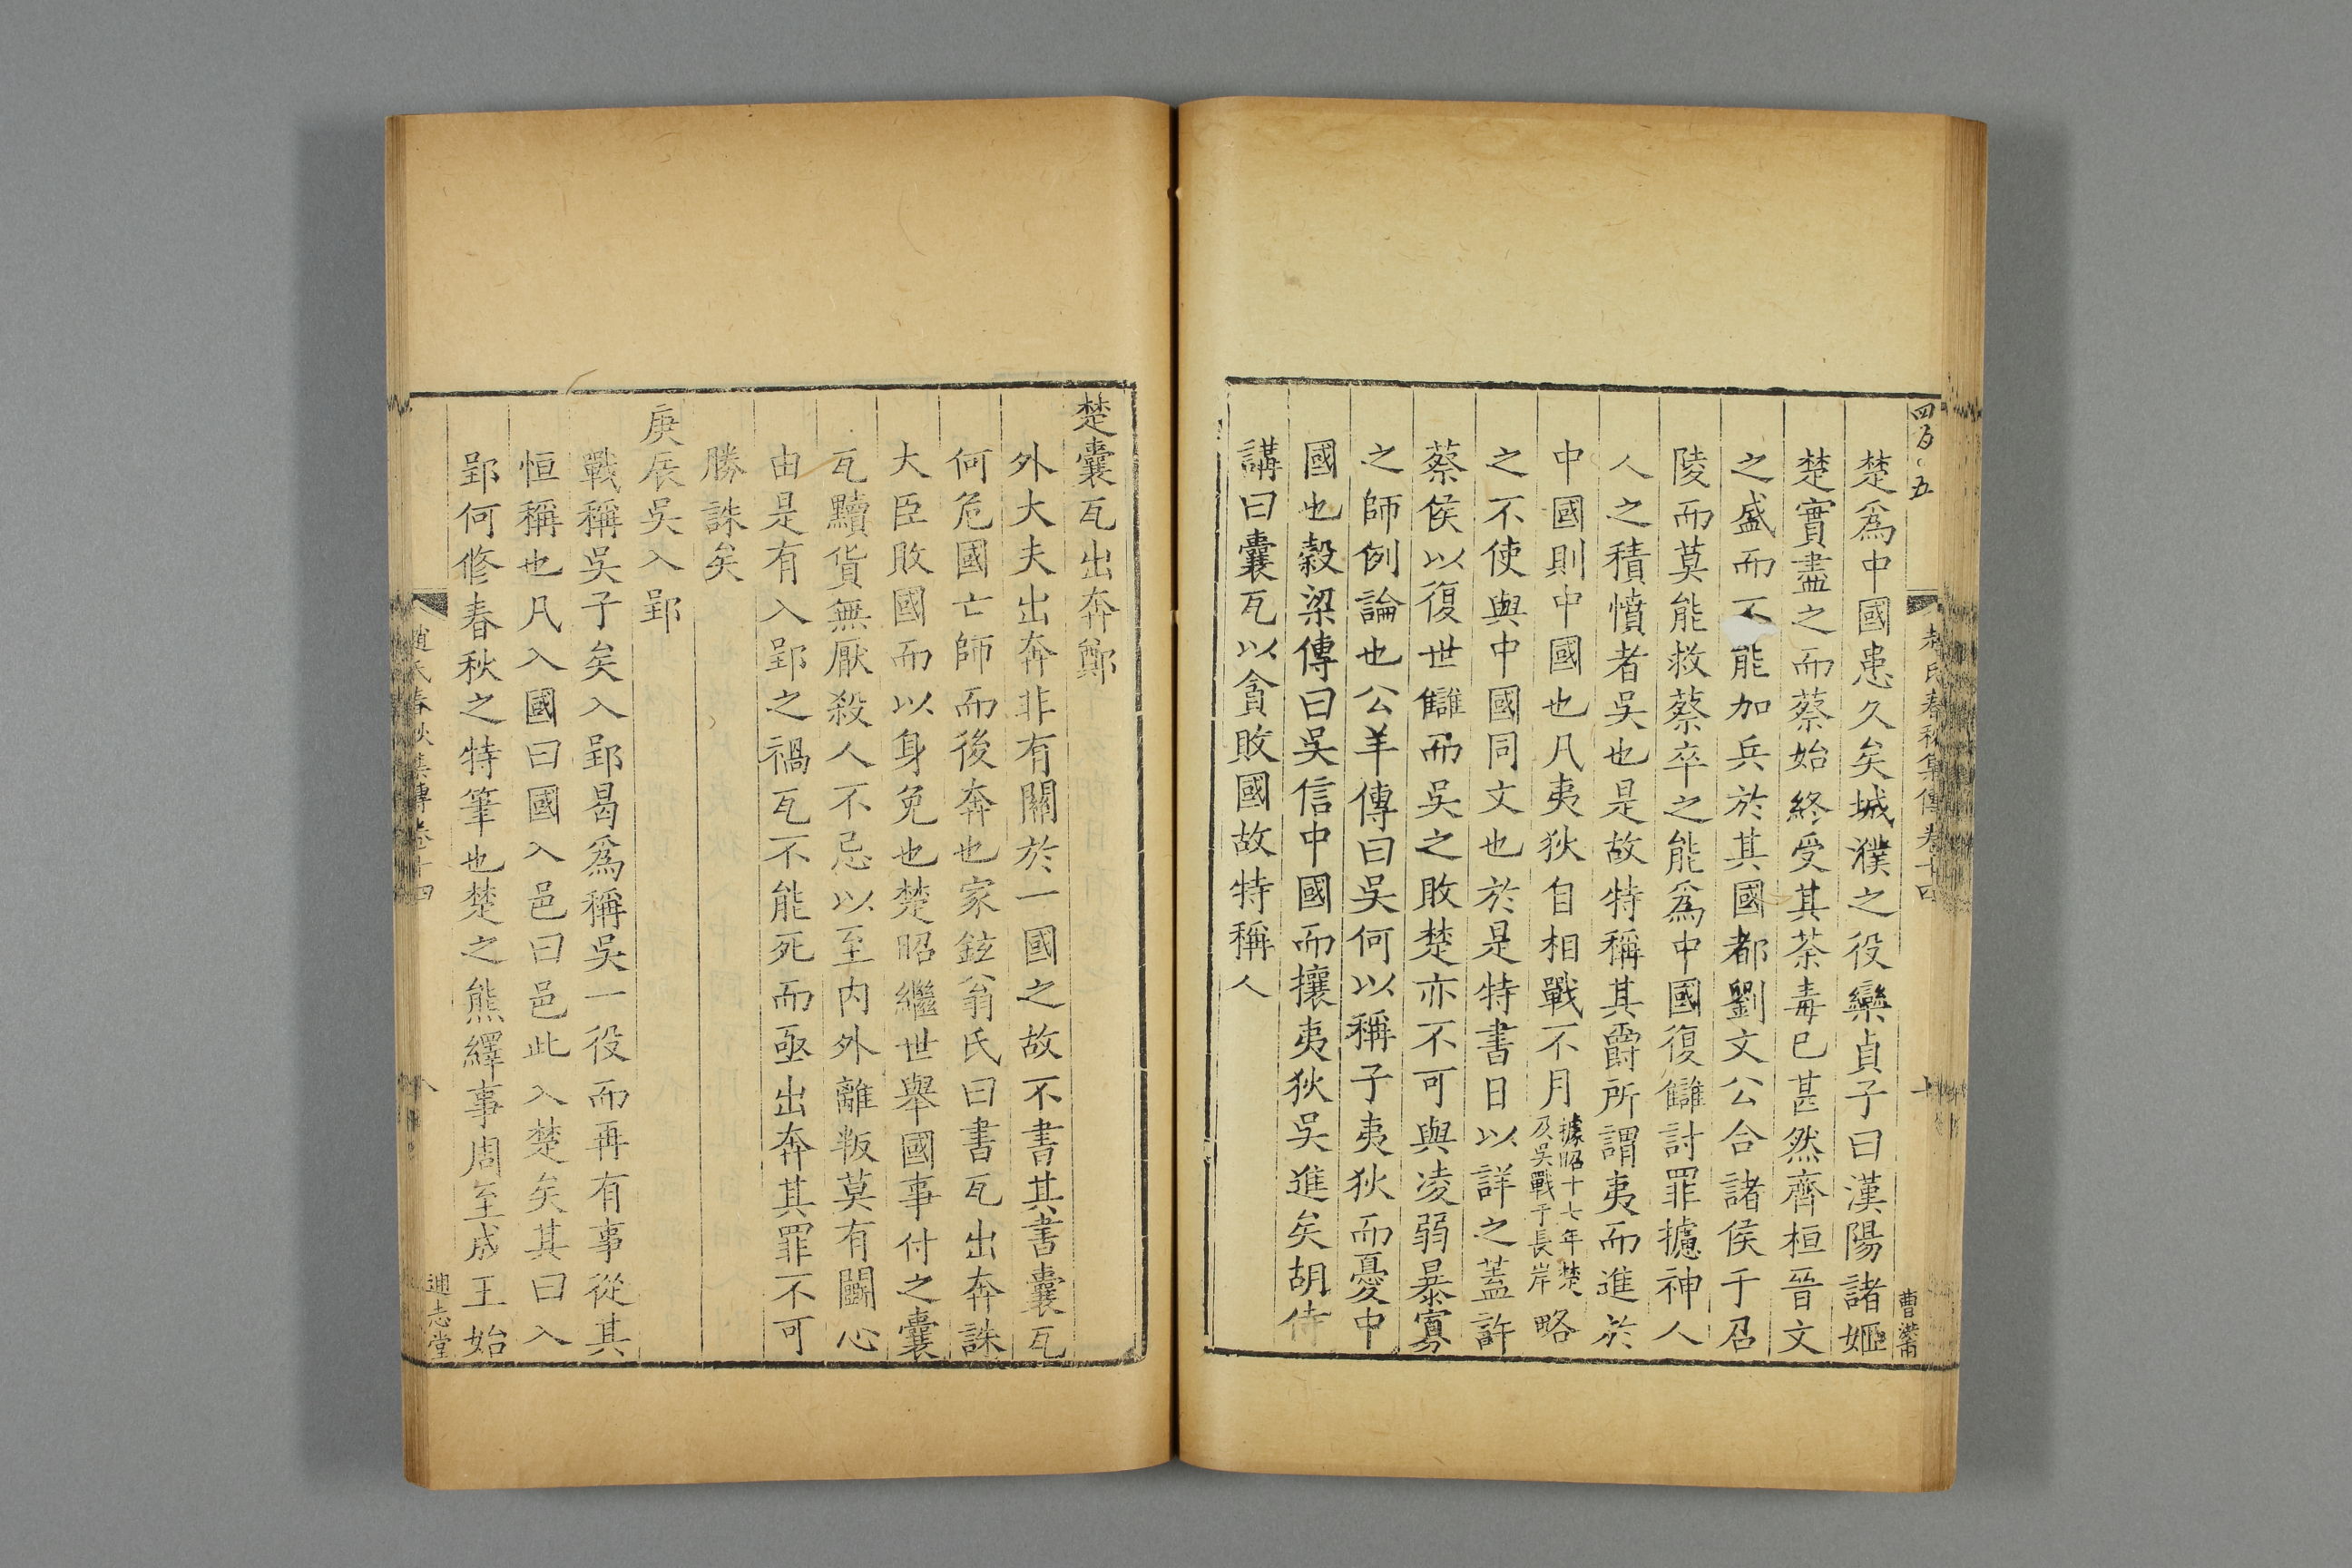 四百五
楚爲中國患久矣城濮之役欒貞子曰漢陽諸姬
楚實盡之而蔡始終受其荼毒已甚然齊桓晉文
之盛而不能加兵於其國都劉文公合諸侯于召
陵而莫能救蔡卒之能爲中國復讎討罪攄神人
人之積憤者吳也是故特稱其爵所謂夷而進於
中國則中國也凡夷狄自相戰不月據昭十七年楚及吳戰于長岸略
之不使與中國同文也於是特書日以詳之蓋許
蔡侯以復世讎而吳之敗楚亦不可與凌弱暴寡
之師例論也公羊傳曰吳何以稱子夷狄而憂中
國也穀梁傳曰吳信中國而攘夷狄吳進矣胡侍
講曰囊瓦以貪敗國故特稱人
楚囊瓦出奔鄭
外大夫出奔非有關於一國之故不書其書囊瓦
何危國亡師而後奔也家鉉翁氏曰書瓦出奔誅
大臣敗國而以身免也楚昭繼世舉國事付之囊
瓦黷貨無厭殺人不忌以至内外離叛莫有鬭心
由是有入郢之禍瓦不能死而亟出奔其罪不可
勝誅矣
庚辰吳入郢
戰稱吳子矣入郢曷爲稱吳一役而再有事從其
恒稱也凡入國曰國入邑曰邑此入楚矣其曰入
郢何修春秋之特筆也楚之熊繹事周至成王始
趙氏春秋集傳卷十四
八
通志堂